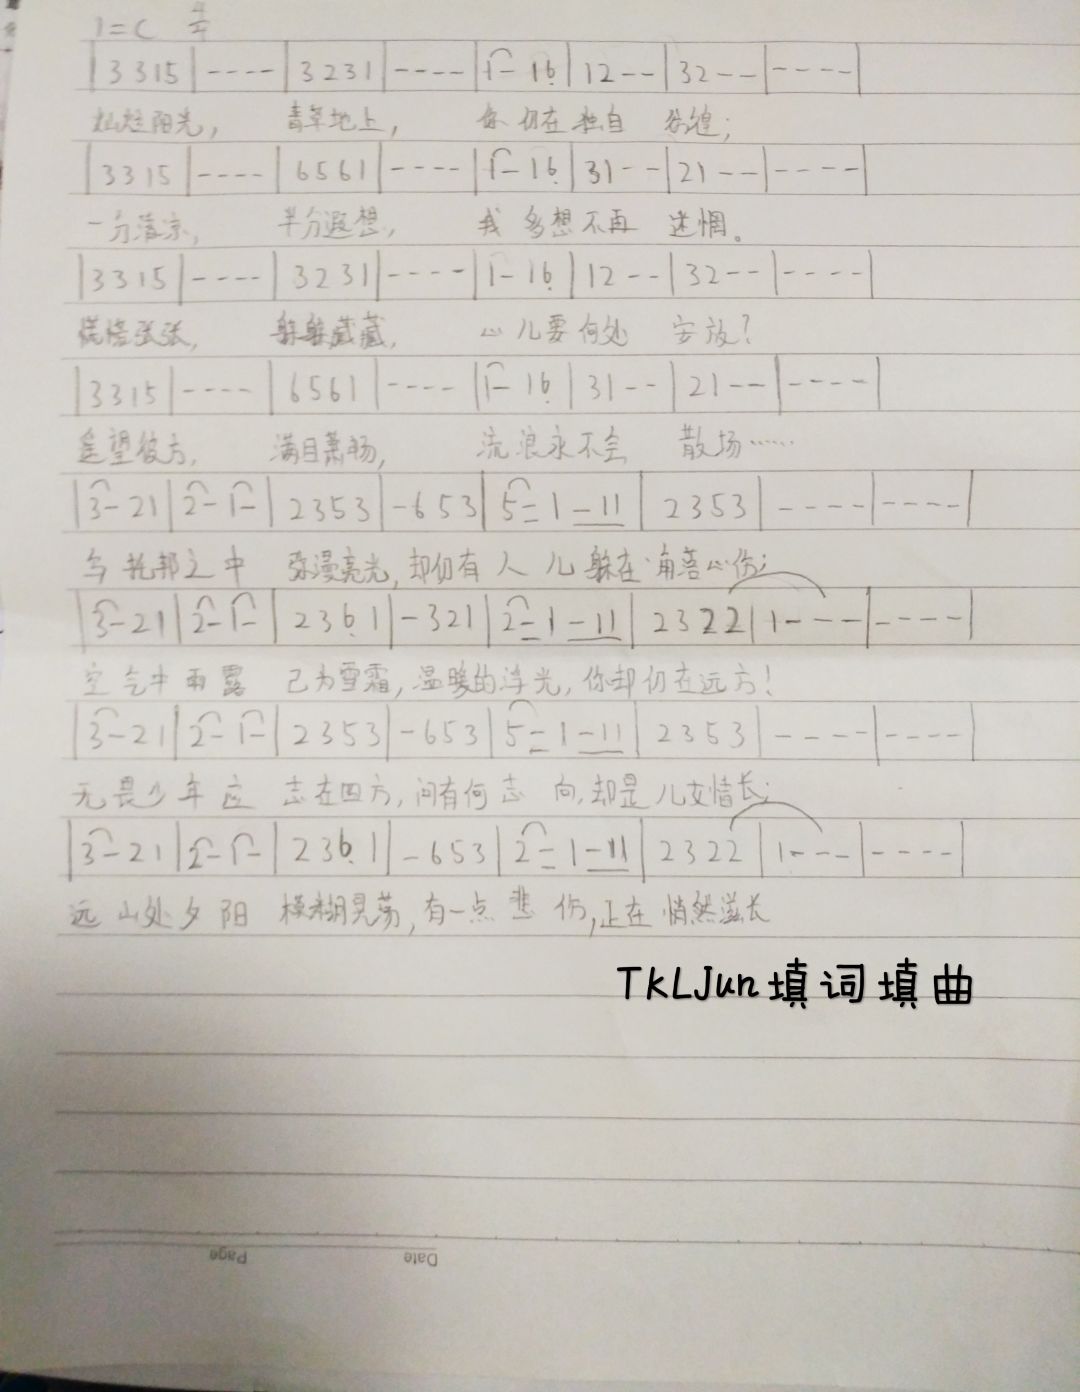 1=C 4/4
|3315|----|3231|----|1-16̣|12--|32--|----|
灿烂阳光, 青草地上, 你仍在独自 彷徨;
|3315|----|6561|----|1-16̣|31--|21--|----|
一分清凉, 半分遐想, 我多想不再 迷惘。
|3315|----|3231|----|1-16̣|12--|32--|----|
慌慌张张, 躲躲藏藏, 心儿要何处 安放?
|3315|----|6561|----|1-16̣|31--|21--|----|
遥望彼方, 满目萧肠, 流浪永不会 散场……
|3-21|2-1-|2353|-653|5-1-11|2353|----|----|
乌托邦之中 弥漫亮光,却仍有人儿躲在角落心伤;
|3-21|2-1-|236̣1|-321|2-1-11|2322|1---|----|
空气中雨露 已为雪霜,温暖的浮光,你却仍在远方!
|3-21|2-1-|2353|-653|5-1-11|2353|----|----|
无畏少年应 志在四方,问有何志向,却是儿女情长;
|3-21|2-1-|236̣1|-653|2-1-11|2322|1---|----|
远山处夕阳 模糊晃荡,有一点悲伤,正在悄然滋长
TKLJun填词填曲
Date
Page